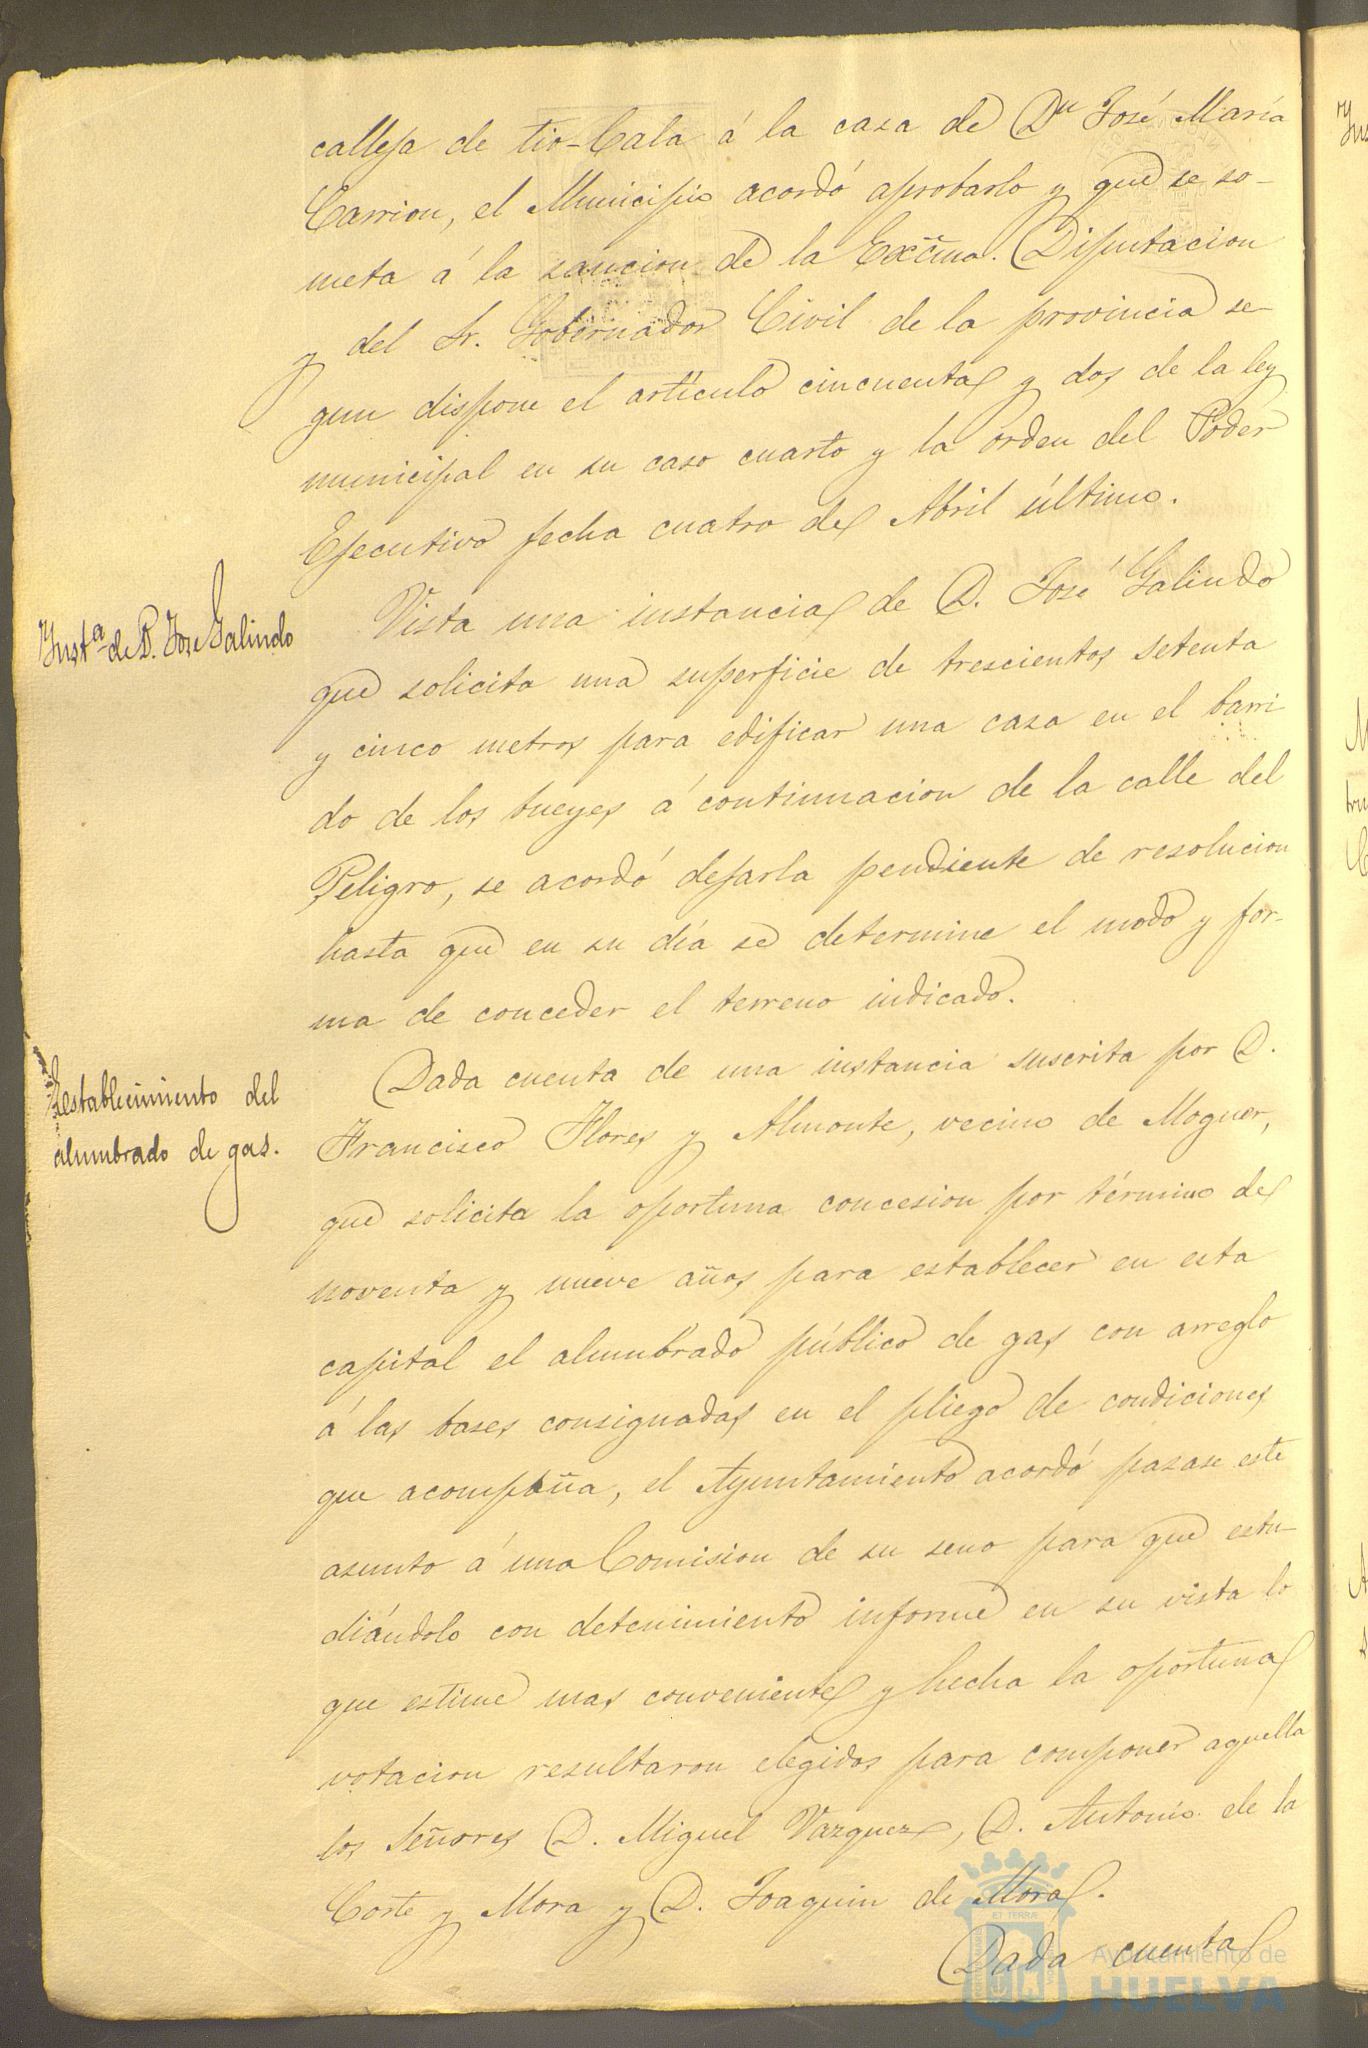 calleja de tio-Cala á la casa de Dn José María
Carrion, el Municipio acordó aprobarlo y que se so-
meta á la sancion de la Excma. Diputacion
y del Sr. Gobernador Civil de la provincia se-
gun dispone el artículo cincuenta y dos de la ley
municipal en su caso cuarto y la orden del Poder
Ejecutivo fecha cuatro de Abril último.
Insta de D. Jose Galindo
Vista una instancia de D. José Galindo
que solicita una superficie de trescientos setenta
y cinco metros para edificar una casa en el barri
do de los bueyes á continuacion de la calle del
Peligro, se acordó dejarla pendiente de resolucion
hasta que en su día se determine el modo y for-
ma de conceder el terreno indicado.
Establecimiento del
alumbrado de gas.
Dada cuenta de una instancia suscrita por D.
Francisco Flores y Almonte, vecino de Moguer,
que solicita la oportuna concesion por término de
noventa y nueve años para establecer en esta
capital el alumbrado público de gas con arreglo
á las bases consignadas en el pliego de condiciones
que acompaña, el Ayuntamiento acordó pasase este
asunto á una Comision de su seno para que estu-
diándolo con detenimiento informe en su vista lo
que estime mas conveniente y hecha la oportuna
votacion resultaron elegidos para componer aquella
los Señores D. Miguel Vazquez, D. Antonio de la
Corte y Mora y D. Joaquin de Mora.
Dada cuenta
Ayuntamiento de
HUELVA